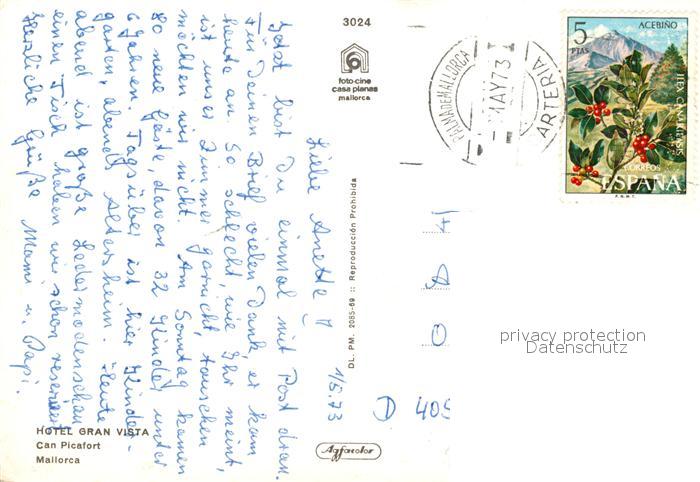 3024
foto-cine
casa planas
mallorca
1/5.73
Liebe Anette!
Jetzt bist Du einmal mit Post dran.
Für Deinen Brief vielen Dank, er kam
heute an. So schlecht, wie Ihr meint,
ist unser Zimmer garnicht, tauschen
möchten wir nicht. Am Sonntag kamen
80 neue Gäste, davon 32 Kinder unter
6 Jahren. Tagsüber ist hier Kinder-
garten, abends Altersheim. Heute
abend ist große Ledermodenschau
einen Tisch haben wir schon reserviert
Herzliche Grüße Mami u. Papi.
HOTEL GRAN VISTA
Can Picafort
Mallorca
DL. PM. 2085-69 :: Reproducción Prohibida
Agfacolor
PALMA DE MALLORCA
MAY 73
ARTERIA
5
PTAS
ACEBIÑO
ILEX CANARIENSIS
CORREOS
ESPAÑA
F.N.M.T.
D 405
privacy protection
Datenschutz